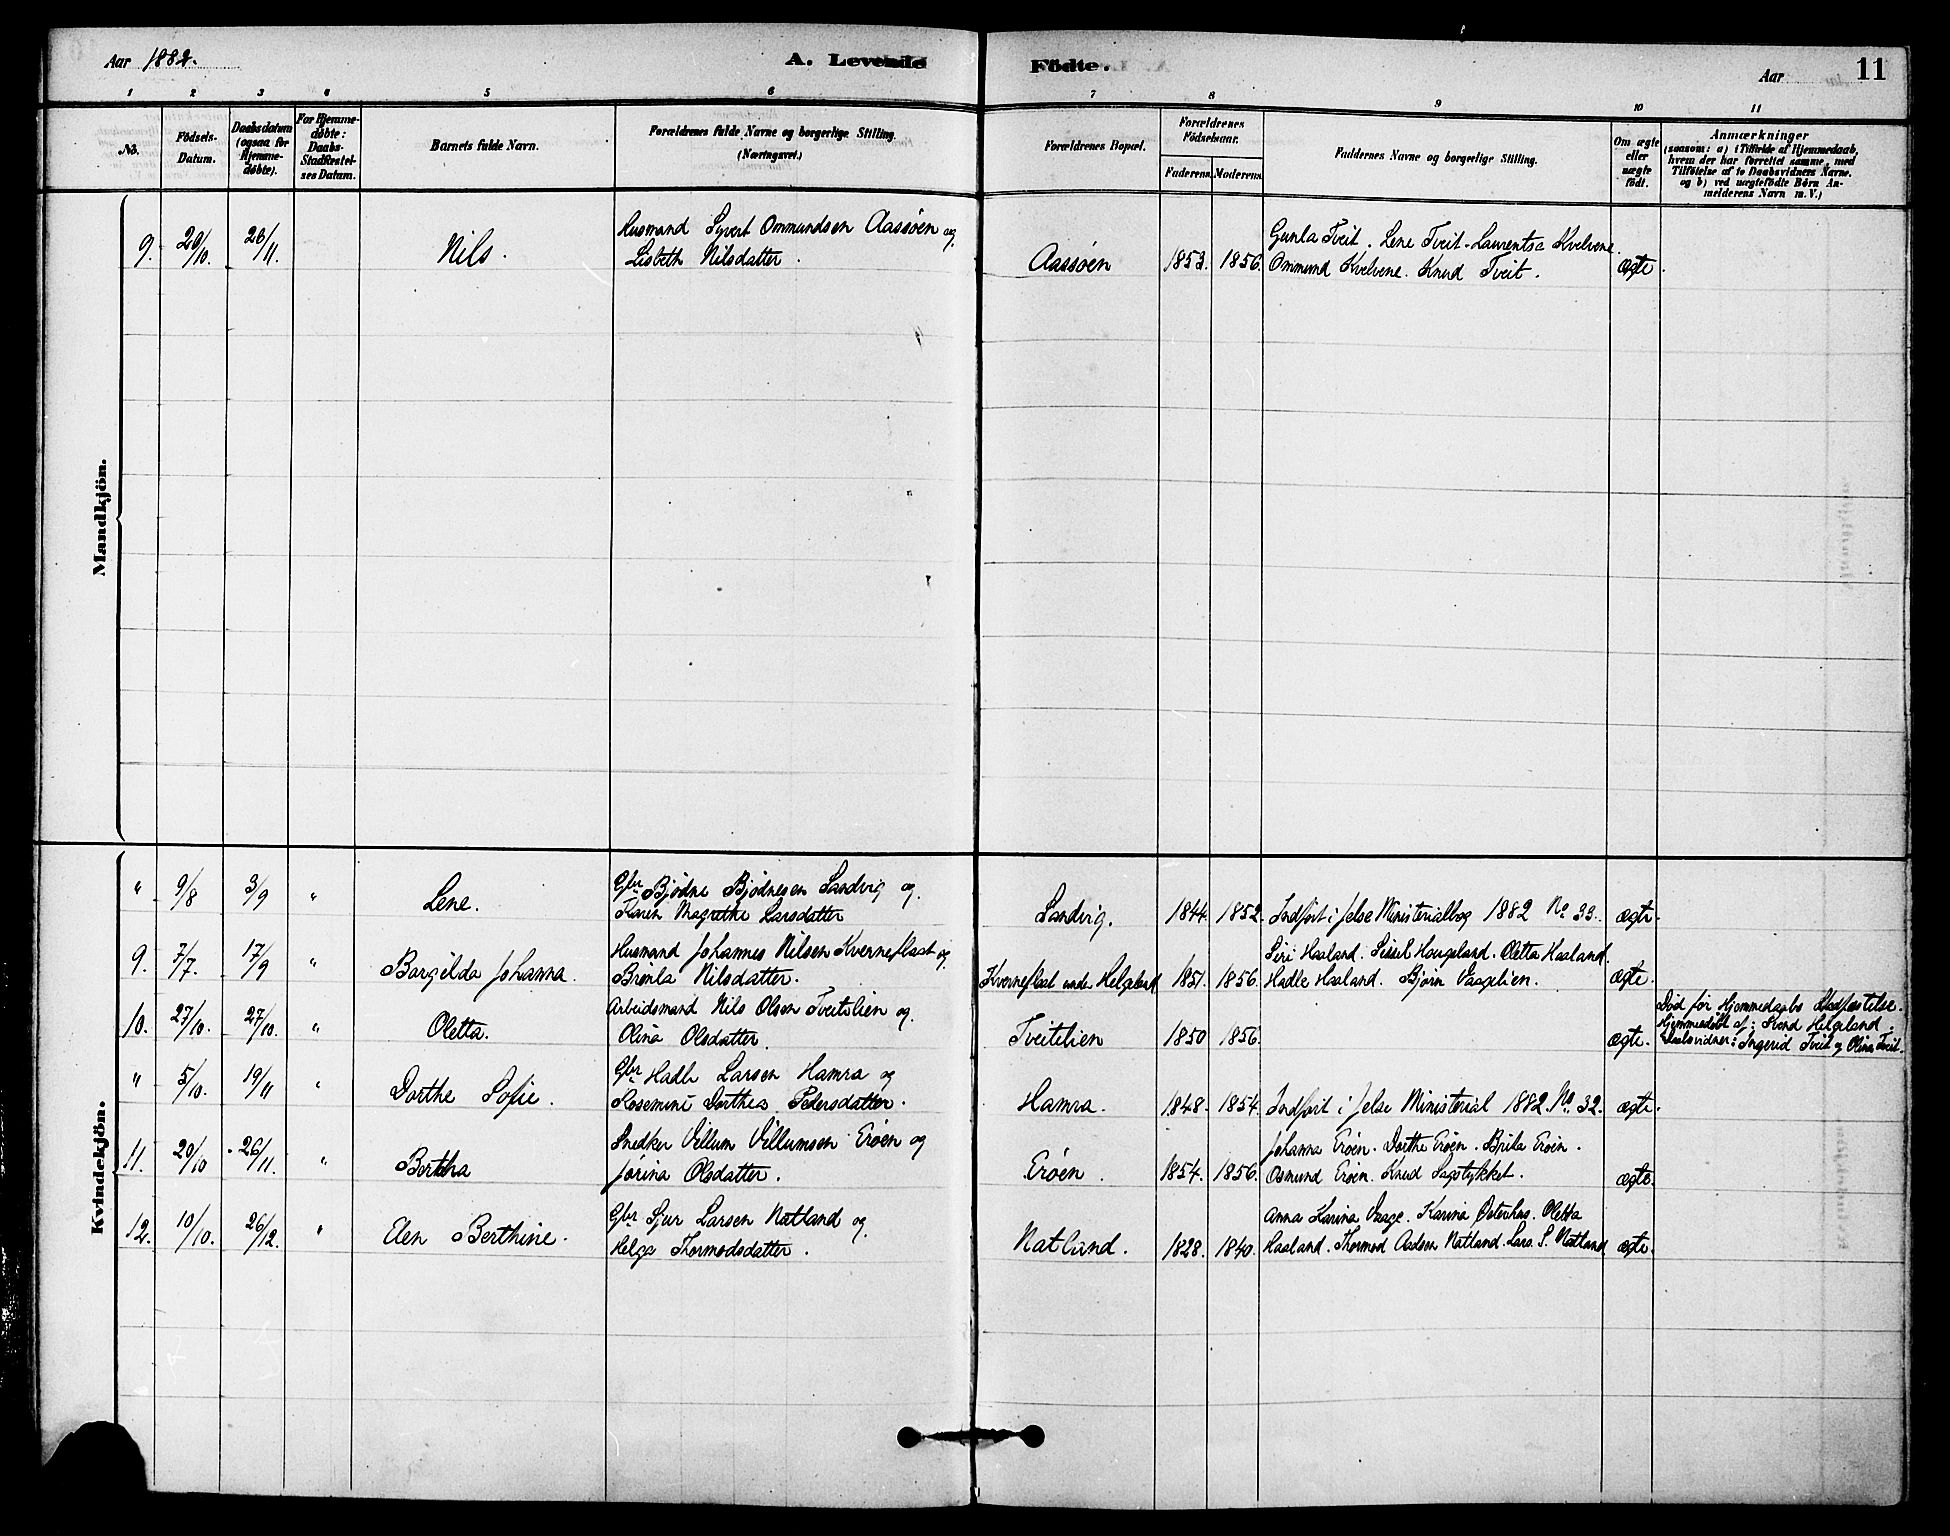 Aar 1882.
A. Levende
Födte.
Aar
11
1 2 3 4 5 6 7 8 9 10 11
No.
Födsels-
Datum.
Daabsdatum
(ogsaa for
Hjemme-
döbte).
For Hjemme-
döbte:
Daabs-
Stadfæstel-
ses Datum.
Barnets fulde Navn.
Forældrenes fulde Navne og borgerlige Stilling.
(Næringsvei.)
Forældrenes Bopæl.
Forældrenes
Födselsaar.
Faderens. Moderens.
Faddernes Navne og borgerlige Stilling.
Om ægte
eller
uægte
födt.
Anmærkninger
(saasom: a) i Tilfælde af Hjemmedaab,
hvem der har forrettet samme, med
Tilföielse af to Daabsvidners Navne.
og b) ved uægtefödte Börn An-
melderens Navn m. V.)
Mandkjön.
9. 20/10. 26/11. Nils.
Husmand Syvert Ommundsen Aassøen og
Lisbeth Nilsdatter.
Aassøen 1853. 1856.
Gunla Tveit. Lene Tveit. Laurentsa Kvelvene.
Ommund Kvelvene. Knud Tveit.
ægte.
Kvindekjön.
" 9/8 3/9 " Lene.
Gbr Bjødne Bjødnesen Sandvig og
Karen Magrethe Larsdatter
Sandvig. 1844. 1852. Indført i Jelse Ministerialbog 1882 No 33. ægte.
9. 7/7. 17/9 " Bargilda Johanna.
Husmand Johannes Nilsen Kverneflaat og
Brønla Nilsdatter.
Kverneflaat under Helgeland 1851. 1856.
Siri Haaland. Sissel Haugeland. Oletta Haaland.
Hadle Haaland. Bjørn Vaagelien.
ægte.
10. 27/10. 27/10. " Oletta.
Arbeidsmand Nils Olsen Tveitelien og
Olina Olsdatter.
Tveitelien 1850 1856. ægte.
Død før Hjemmedaabs Stadfæstelse.
Hjemmedøbt af: Helgeland.
Daabsvidner: Ingerid Tveit og Olina Tveit.
" 5/10. 19/11 " Dorthe Sofie.
Gbr Hadle Larsen Hamra og
Rosemine Dorthea Pedersdatter.
Hamra. 1848. 1854. Indført i Jelse Ministerial 1882. No. 32. ægte.
11. 20/10 26/11. " Bertha
Snedker Villum Villumsen Erøen og
Jorina Olsdatter.
Erøen. 1854. 1856.
Johanna Erøen. Dorthe Erøen. Brita Erøen.
Osmund Erøen. Knud Sagstykket.
ægte.
12. 10/10. 26/12. " Elen Berthine.
Gbr Sjur Larsen Natland og
Helga Thormodsdatter.
Natland. 1828. 1840.
Anna Karina Vaage. Karina Østerhus. Oletta
Haaland. Thormod Aadsen Natland. Lars S. Natland
ægte.